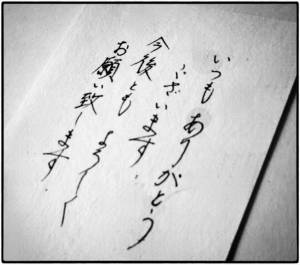 いつも ありがとう
ございます。
今後とも よろしく
お願い致します。